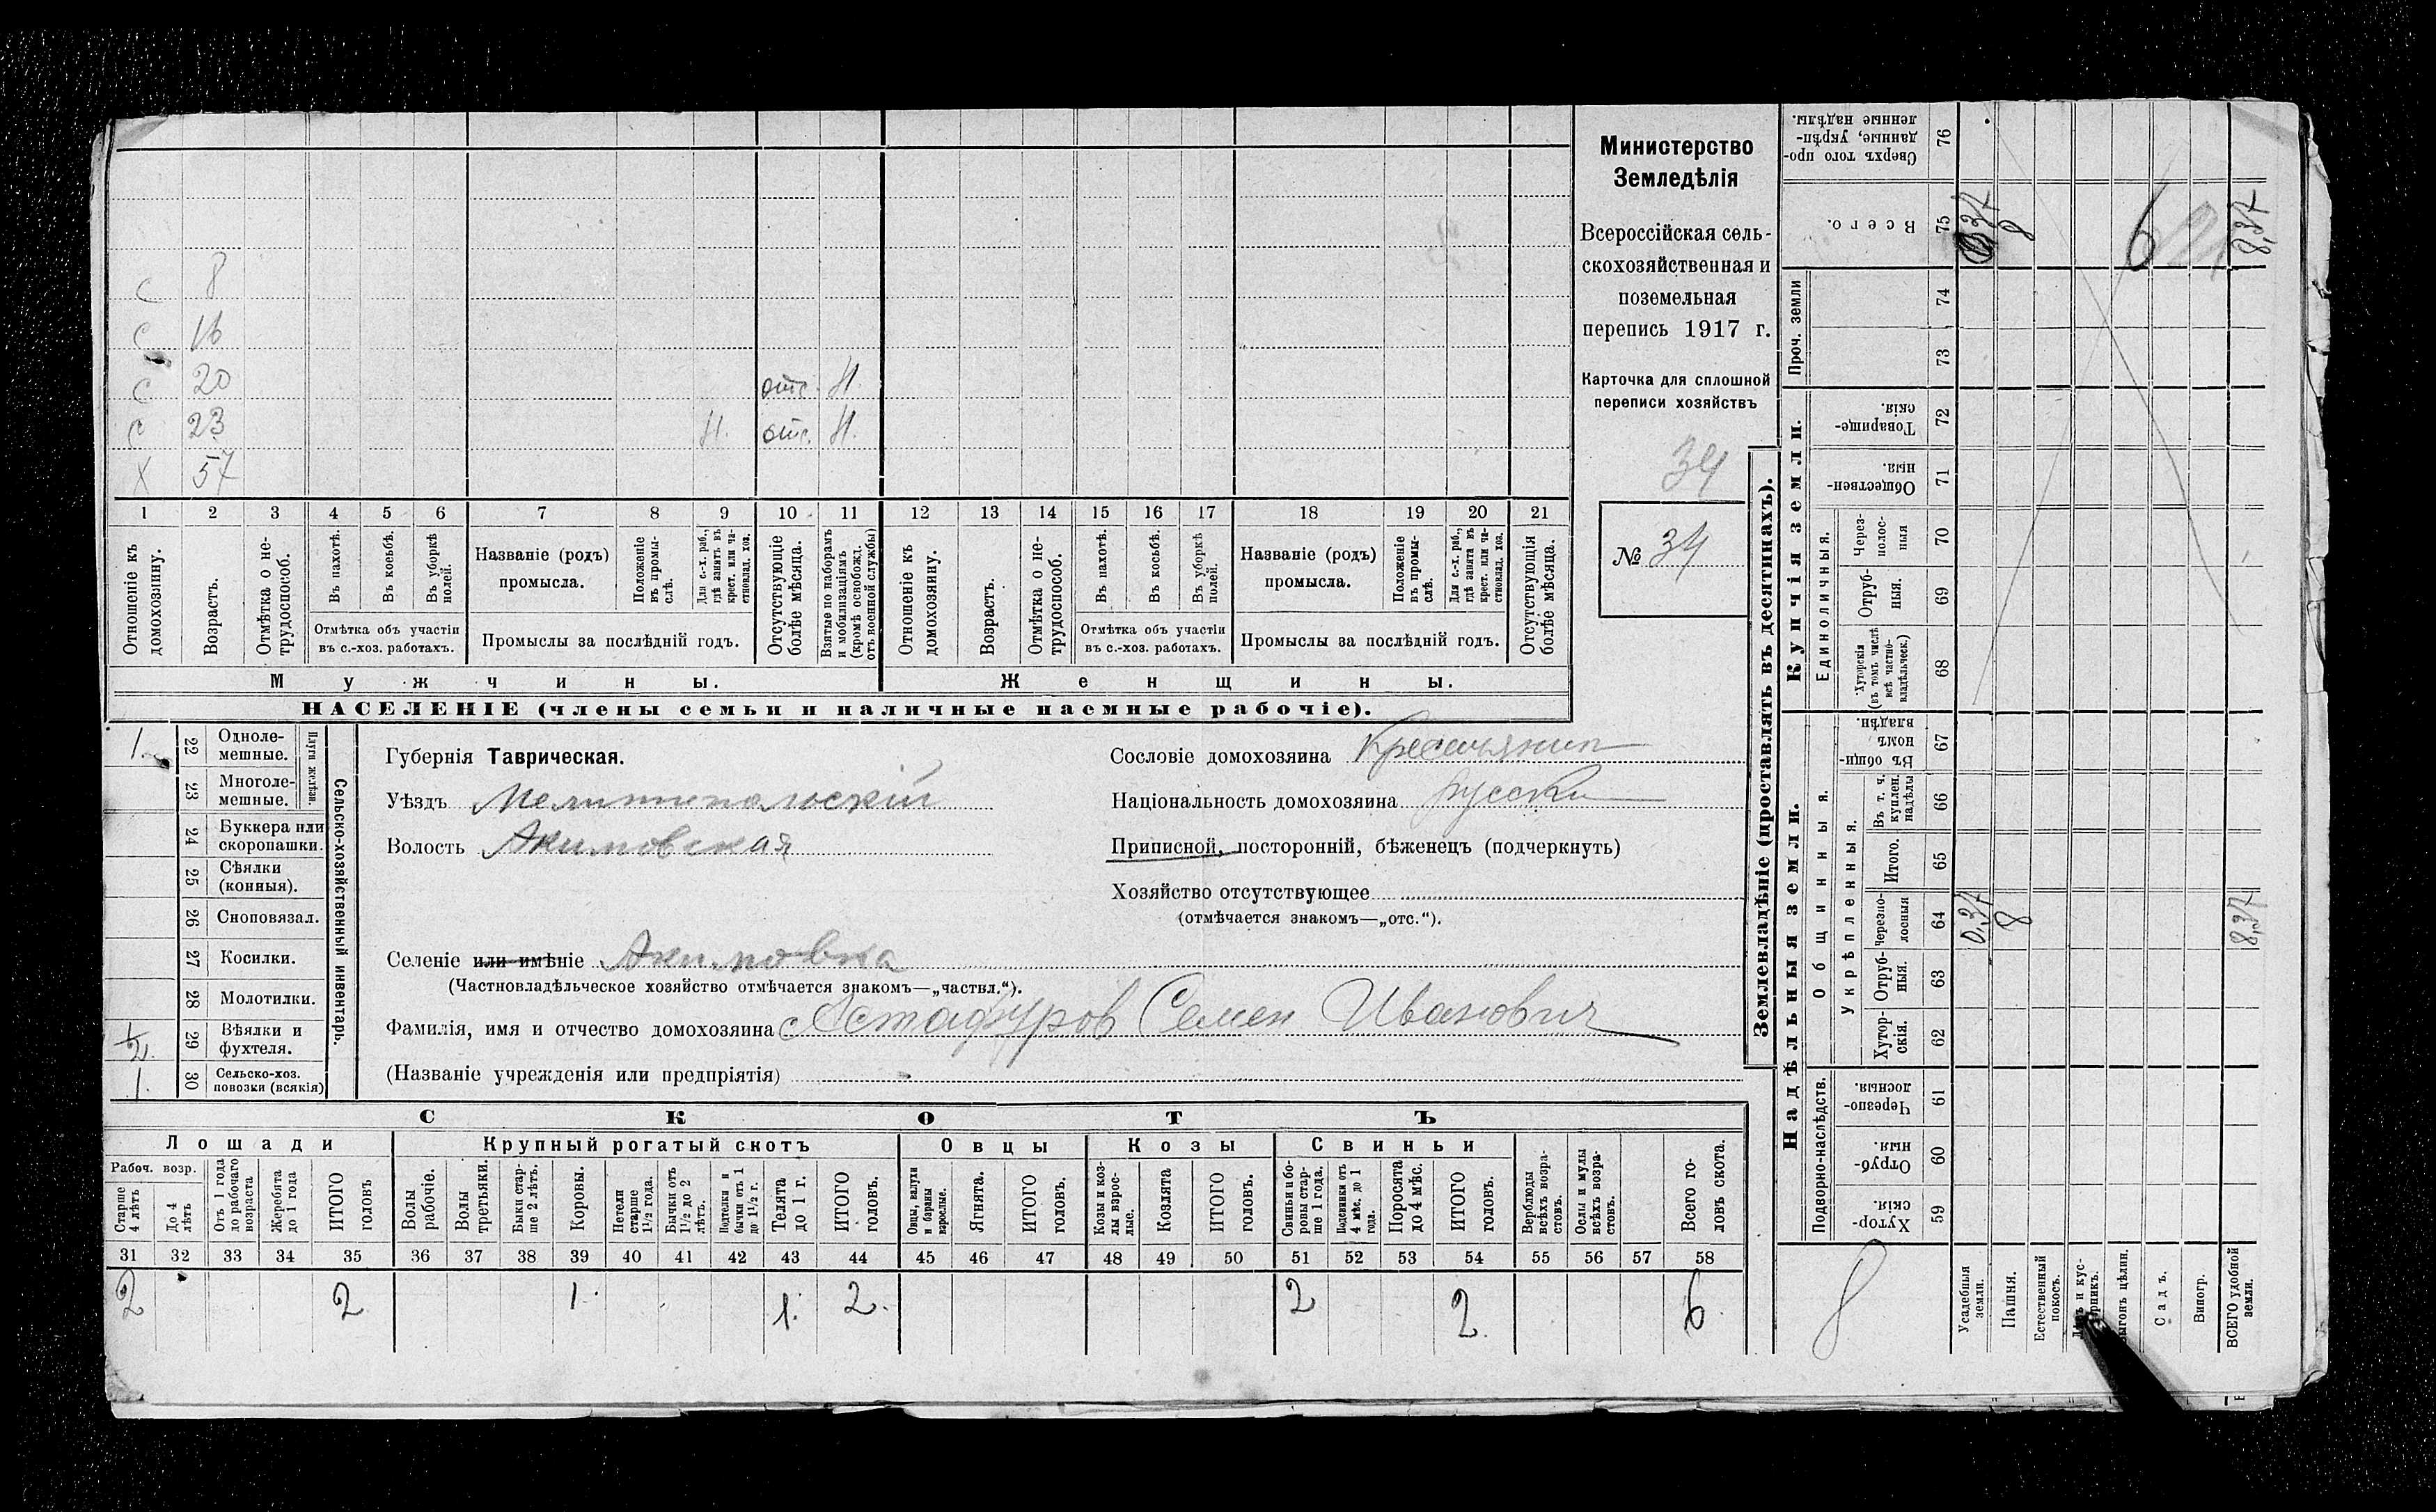 С 8
С 16
С 20 отс. Н.
С 23 Н. отс. Н.
Х 57
1 2 3 4 5 6 7 8 9 10 11 12 13 14 15 16 17 18 19 20 21
Отношеніе къ домохозяину.
Возрастъ.
Отмѣтка о нетрудоспособ.
Въ пахотѣ.
Въ косьбѣ.
Въ уборкѣ полей.
Отмѣтка объ участіи
въ с.-хоз. работахъ.
Названіе (родъ)
промысла.
Положеніе въ промыслѣ.
Для с.-х. раб., гдѣ занятъ въ крест. или частновлад. хоз.
Промыслы за послѣдній годъ.
Отсутствующіе болѣе мѣсяца.
Взятые по наборамъ и мобилизаціямъ (кромѣ освобожд. отъ военной службы)
Отношеніе къ домохозяину.
Возрастъ.
Отмѣтка о нетрудоспособ.
Въ пахотѣ.
Въ косьбѣ.
Въ уборкѣ полей.
Отмѣтка объ участіи
въ с.-хоз. работахъ.
Названіе (родъ)
промысла.
Положеніе въ промыслѣ.
Для с.-х. раб., гдѣ занята въ крест. или частновлад. хоз.
Промыслы за послѣдній годъ.
Отсутствующія болѣе мѣсяца.
Мужчины.
Женщины.
НАСЕЛЕНІЕ (члены семьи и наличные наемные рабочіе).
Министерство
Земледѣлія
Всероссійская сель-
скохозяйственная и
поземельная
перепись 1917 г.
Карточка для сплошной
переписи хозяйствъ
34
№ 34
1. 22 Одноле-
мешные.
23 Многоле-
мешные.
Плуги желѣзн.
24 Буккера или
скоропашки.
25 Сѣялки
(конныя).
26 Сноповязал.
27 Косилки.
28 Молотилки.
1/2. 29 Вѣялки и
фухтеля.
1. 30 Сельско-хоз.
повозки (всякія)
Сельско-хозяйственный инвентарь.
Губернія Таврическая.
Уѣздъ Мелитопольскій
Волость Акимовская
Селеніе или имѣніе Акимовка
(Частновладѣльческое хозяйство отмѣчается знакомъ—„частвл.“).
Фамилія, имя и отчество домохозяина Астафуров Семен Иванович
(Названіе учрежденія или предпріятія)
Сословіе домохозяина Крестьянин
Національность домохозяина русски
Приписной, посторонній, бѣженецъ (подчеркнуть)
Хозяйство отсутствующее
(отмѣчается знакомъ—„отс.“).
СКОТЪ
Лошади Крупный рогатый скотъ Овцы Козы Свиньи
Рабоч. возр.
Старше 4 лѣтъ
До 4 лѣтъ
Отъ 1 года до рабочаго возраста
Жеребята до 1 года
ИТОГО головъ
Волы рабочіе.
Волы третьяки.
Быки старше 2 лѣтъ.
Коровы.
Нетели старше 1½ года.
Бычки отъ 1½ до 2 лѣтъ.
Подтелки и бычки отъ 1 до 1½ г.
Телята до 1 г.
ИТОГО головъ.
Овцы, валухи и бараны взрослые.
Ягнята.
ИТОГО головъ.
Козы и козлы взрослые.
Козлята
ИТОГО головъ.
Свиньи и боровы старше 1 года.
Подсвинки отъ 4 мѣс. до 1 года.
Поросята до 4 мѣс.
ИТОГО головъ.
Верблюды всѣхъ возрастовъ.
Ослы и мулы всѣхъ возрастовъ.
Всего головъ скота.
31 32 33 34 35 36 37 38 39 40 41 42 43 44 45 46 47 48 49 50 51 52 53 54 55 56 57 58
2 2 1. 1. 2. 2 2. 6.
Землевладѣніе (проставлять въ десятинахъ).
Купчія земли.
Надѣльныя земли.
Сверхъ того проданные, укрѣпленные надѣлы. 76
Всего. 75 0,37 8 6 8,37
Проч. земли
74
73
Товарищескія. 72
Общественныя. 71
Единоличныя.
Черезполосныя 70
Отрубныя. 69
Хуторскія (въ томъ числѣ всѣ частновладѣльческ.) 68
Общинныя.
Въ общинномъ владѣн. 67
Укрѣпленныя.
Въ т. ч. куплен. надѣлы 66
Итого. 65
Черезполосныя 64 0,37 8 8,37
Отрубныя. 63
Хуторскія. 62
Подворно-наслѣдств.
Черезполосныя. 61
Отрубныя. 60
Хуторскія. 59
8
Усадебныя земли.
Пашня.
Естественный покосъ.
и кус-
цѣлин.
Садъ.
Виногр.
ВСЕГО удобной земли.